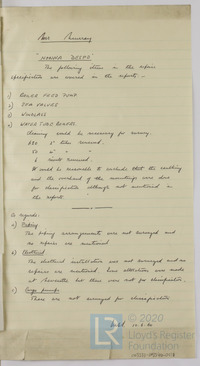 "NORNA DESPO"
The following items in the repair
specification was covered in the reports: -
1) BOILER FEED PUMP
2) SEA VALVES
3) WINDLASS
4) WATER TUBE BOILERS
Cleaning would be necessary for survey.
2" tubes renewed.
renewed.
It could be reasonable to exclude that the scaling
and the overhaul of the mountings were done
for classification although not mentioned in
the reports.
As regards:
a) Piping
The piping arrangements were not surveyed and
no repairs are mentioned.
b) Electrical
The electrical installation was not surveyed and no
repairs are mentioned. Some alterations were made
at but these were not for classification.
c) Cargo pumps
These are not surveyed for classification.
© 2020
Lloyd's Register
Foundation